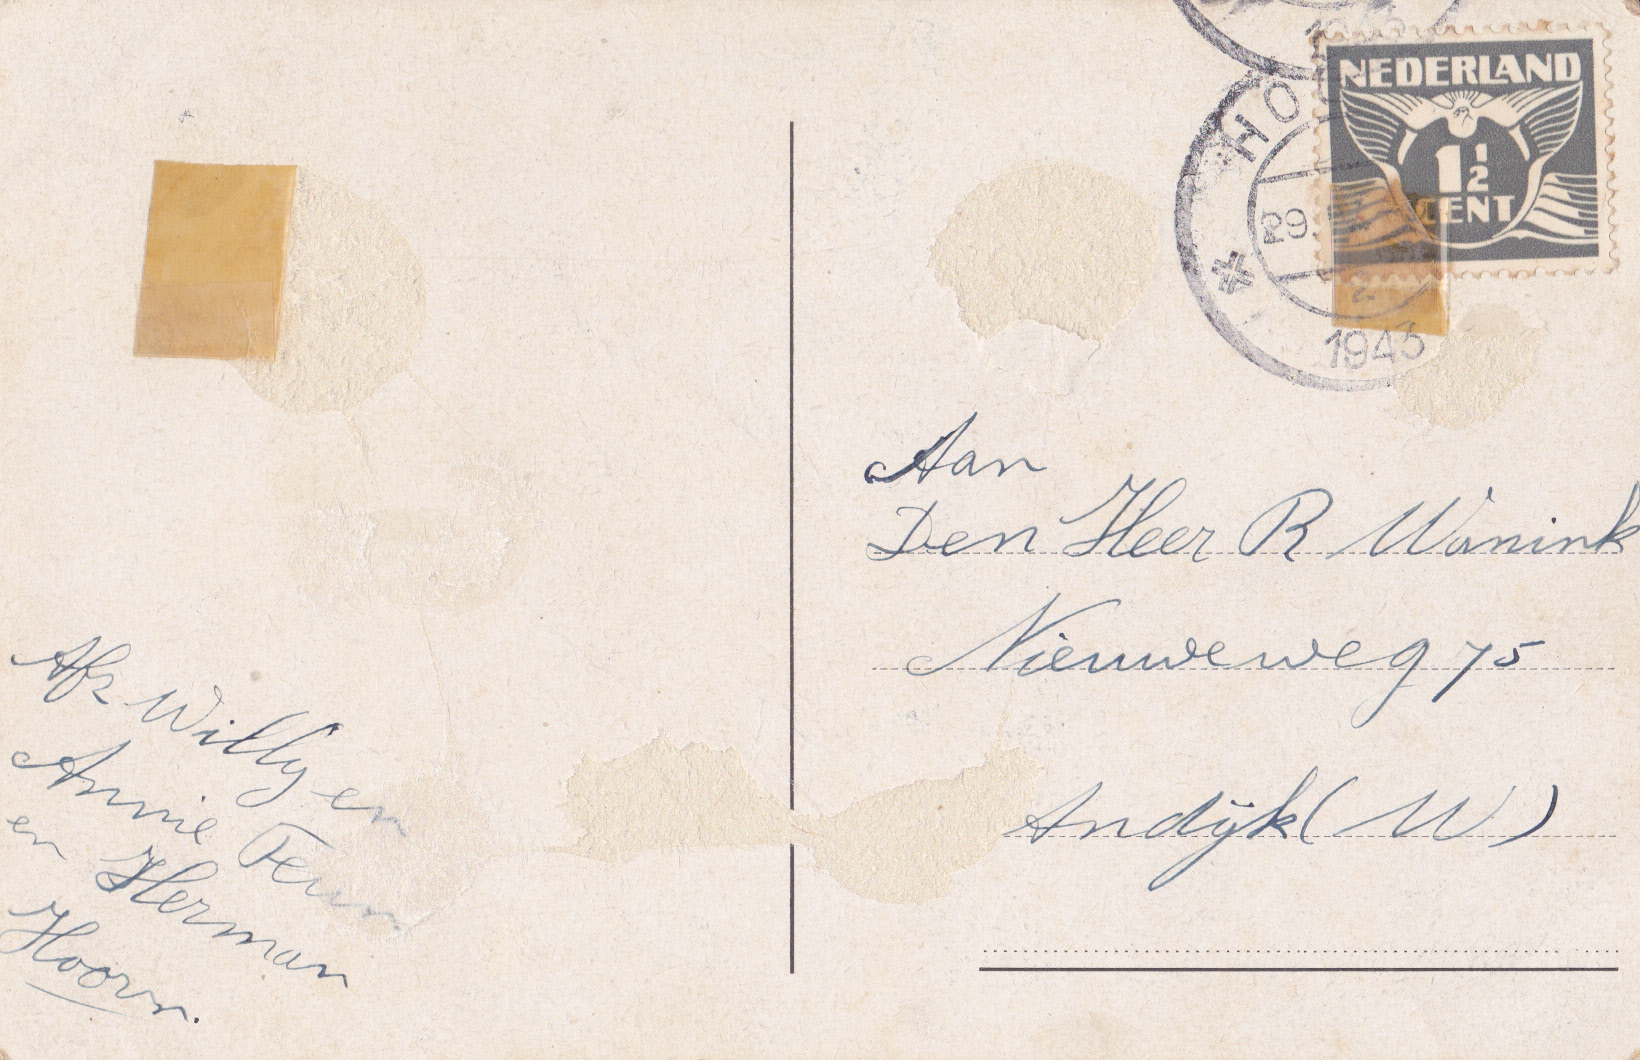 NEDERLAND
1½
CENT
HO
29.
2
1943
Aan
Den Heer R Wanink
Nieuweweg 75
Andijk (W)
Afz Willy en
Annie
en Herman
Hoorn.